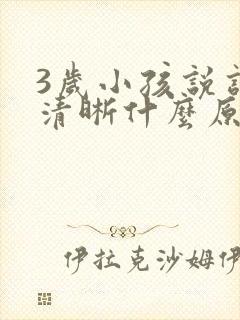 3歲小孩説
清晰什麼原
伊拉克沙姆伊